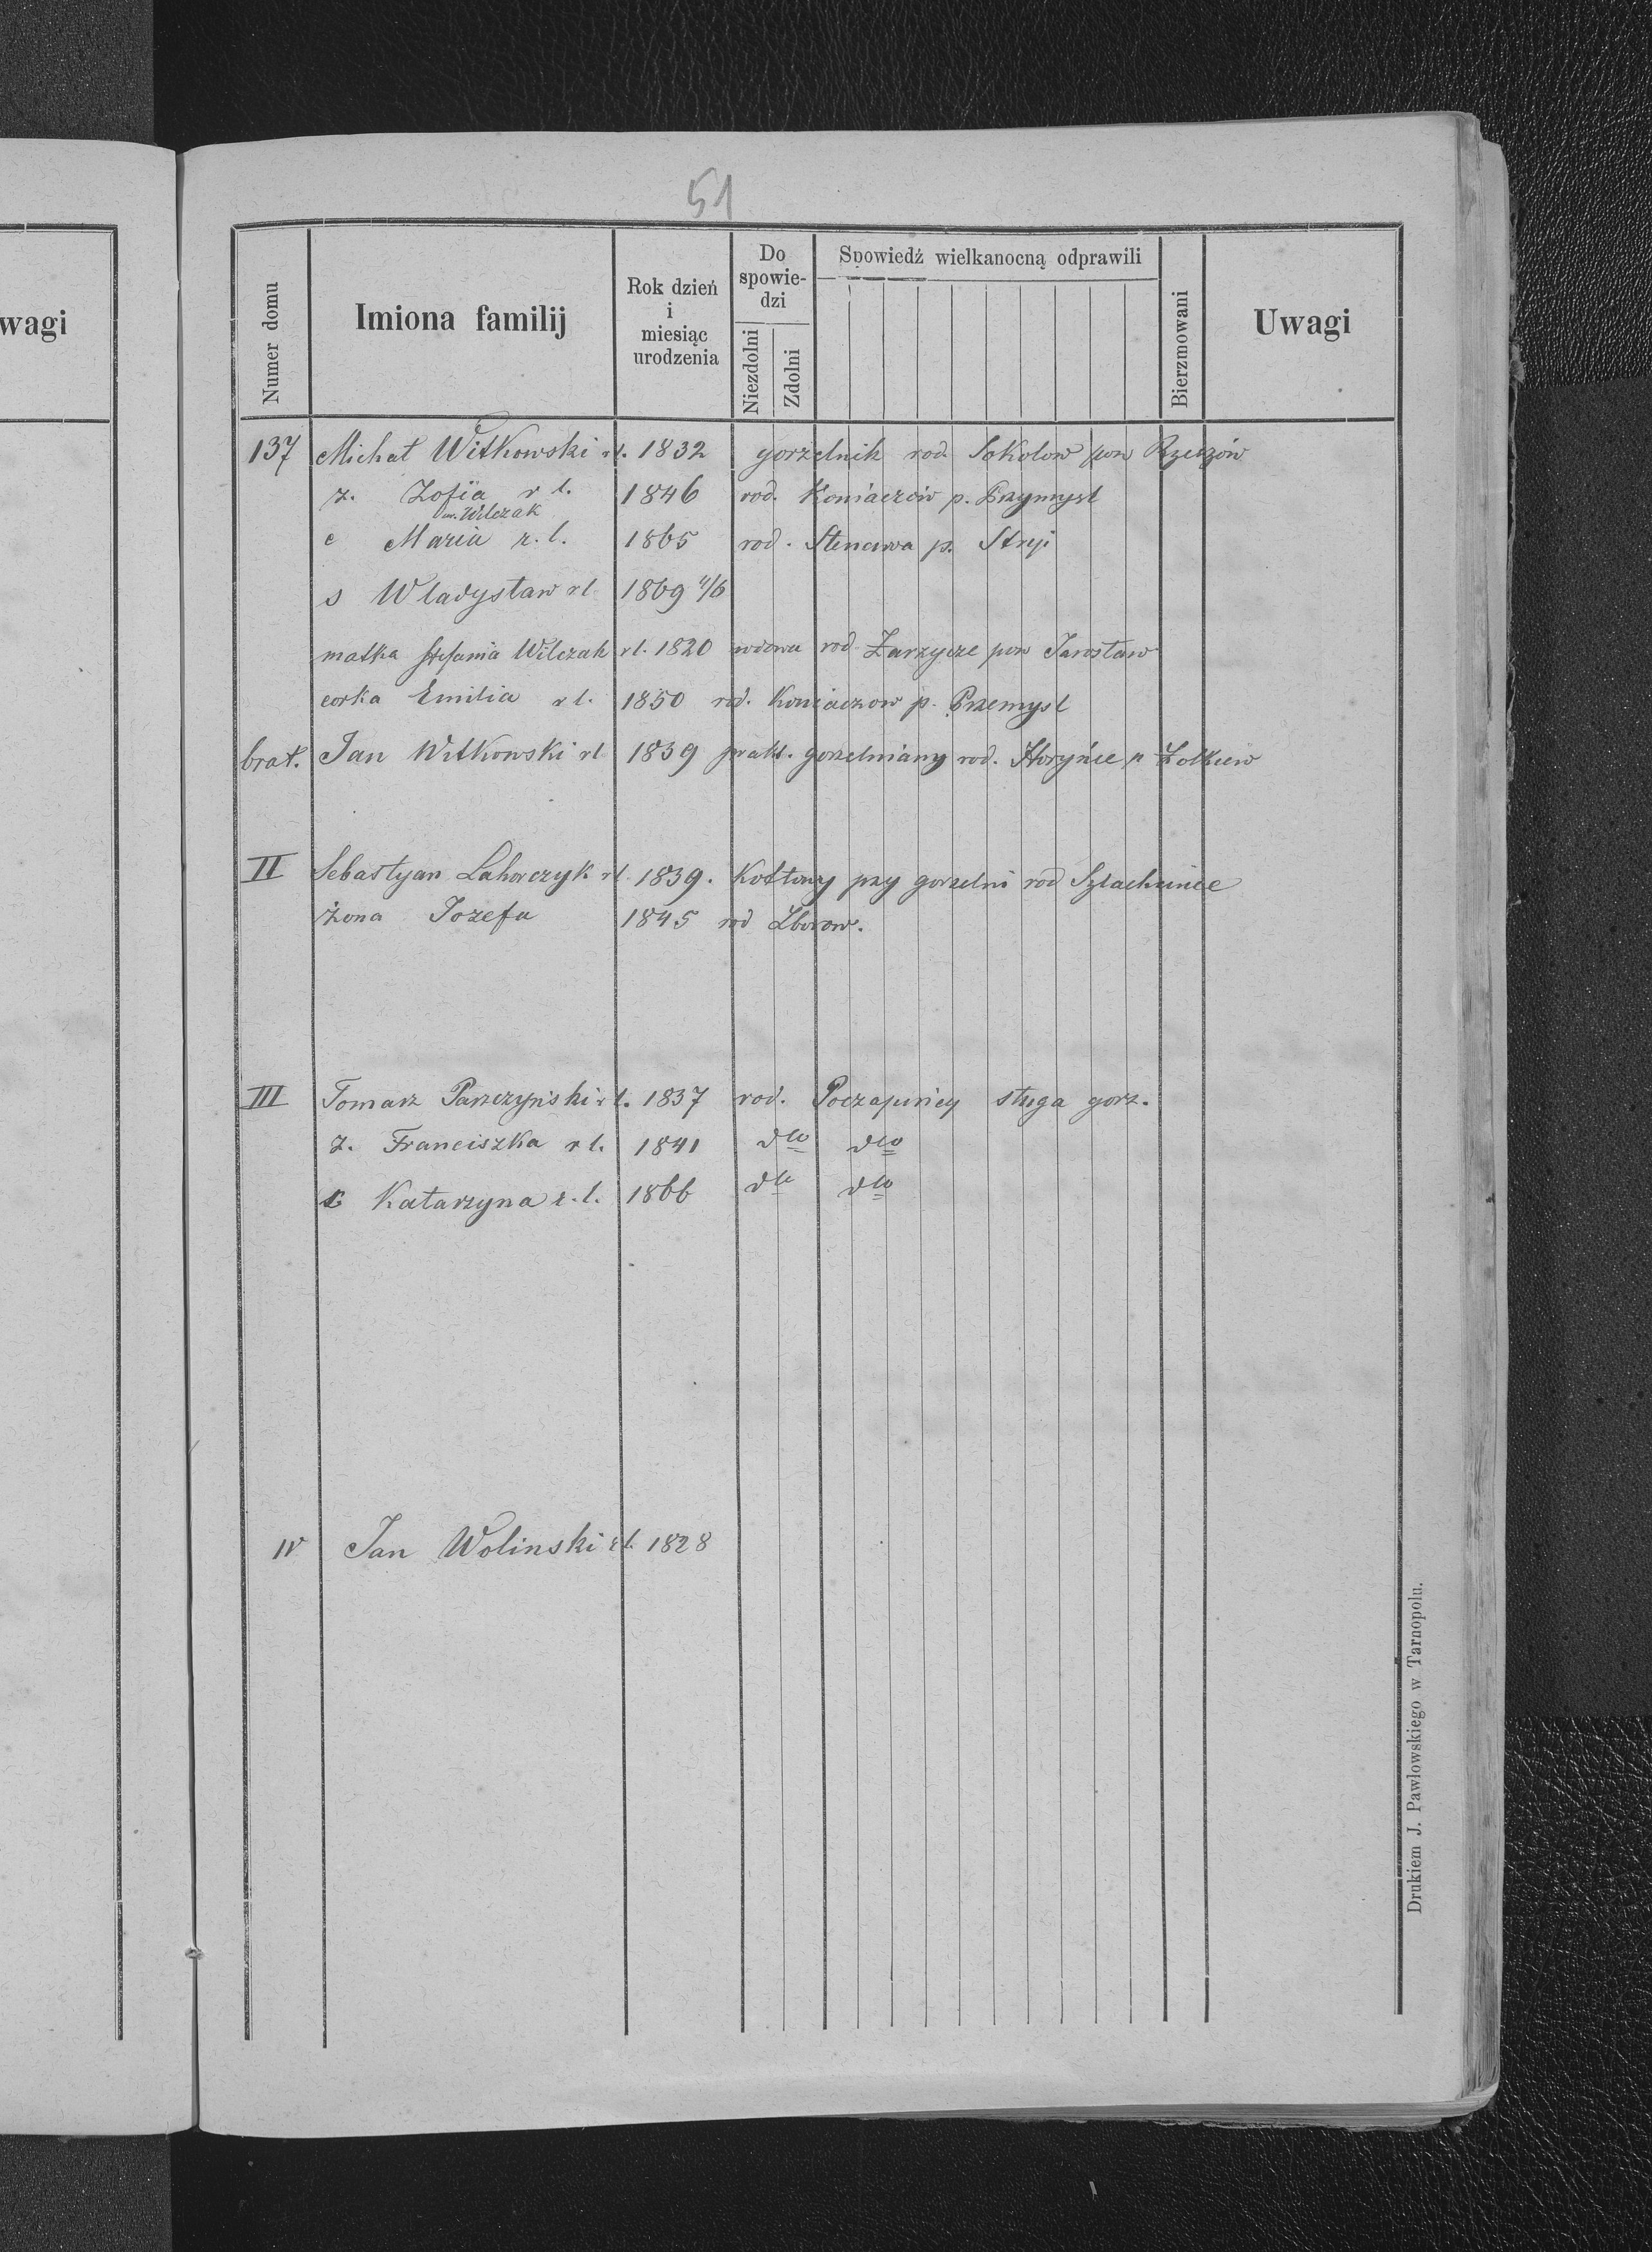 51
wagi
Numer domu
Imiona familij
Rok dzień
i
miesiąc
urodzenia
Do
spowie-
dzi
Niezdolni
Zdolni
Spowiedź wielkanocną odprawili
Bierzmowani
Uwagi
137 Michał Witkowski rl. 1832 gorzelnik rod. Sokolow pow Rzeszów
ż. Zofija r l. 1846 rod. Koniaczów p. Przymysl
Wilczak
c Maria r. l. 1865 rod. p. Stryi
s Władysław rl 1869 4/6
matka Stefania Wilczak rl. 1820 wdowa rod Zarzycze pow Jarosław
corka Emilia rl. 1850 rod. Koniaczow p. Przemysl
brat. Jan Witkowski rl 1839 prakt. gorzelniany rod. Horyńce p Żołkiew
II Sebastyan Lahorczyk rl 1839. Kotłowy przy gorzelni rod Szlachcince
żona Jozefa 1845 rod Zborow.
III Tomasz Parczyński rl. 1837 rod. Poczapińcy sługa gorz.
ż. Franciszka rl. 1841 dto dto
c Katarzyna r. l. 1866 dto dto
IV Jan Wolinski rl. 1828
Drukiem J. Pawłowskiego w Tarnopolu.